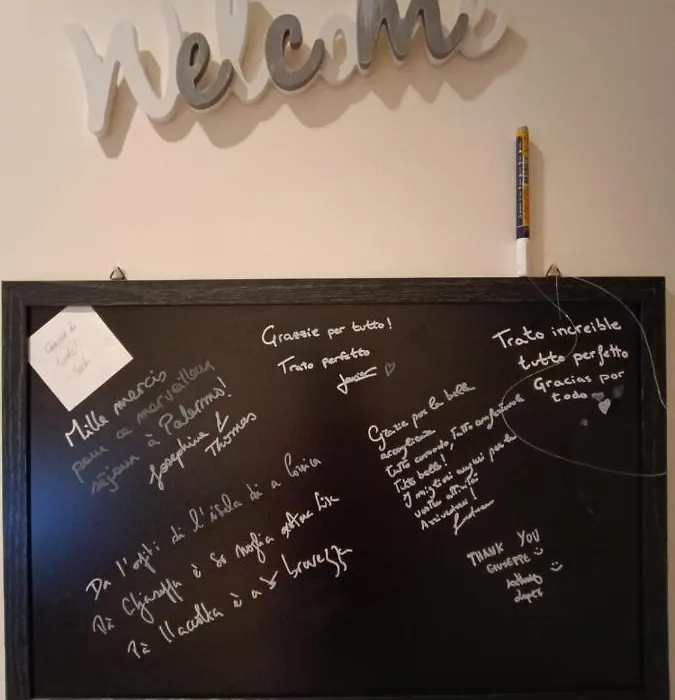 Welcome
Grazie di
tutto!
Mille mercis
pour ce merveilleux
séjour à Palermo!
Josephine &
Thomas
Grassie per tutto!
Trato perfetto
Javier
Trato increible
tutto perfetto
Gracias por
todo
Grazie per la bella
accoglienza
tutto comodo, tutto
Tutto bello!
I migliori auguri per la
vostra attività
Arrivederci!
Da l'ospiti di l'isula di a
Pà è So moglia
Pà l'accolta è a
THANK YOU
GIUSEPPE
Anthony